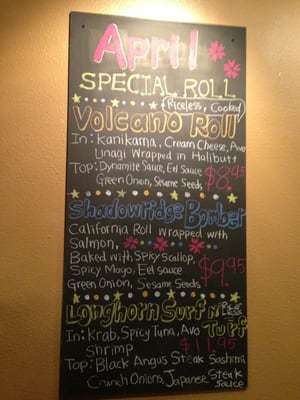 April
SPECIAL ROLL
Riceless, Cooked
Volcano Roll
In: Kanikama, Cream Cheese, Avo
Unagi Wrapped in Halibutt
Top: Dynamite Sauce, Eel Sauce
Green Onion, Sesame Seeds
$8.95
Shadowridge Bomber
California Roll wrapped with
Salmon,
Baked with Spicy Scallop,
Spicy Mayo, Eel sauce
Green Onion, Sesame Seeds
$9.95
Longhorn Surf N'
Turf
In: Krab, Spicy Tuna, Avo
Shrimp
$11.95
Top: Black Angus Steak Sashimi
Crunch Onions, Japanese Steak
Sauce